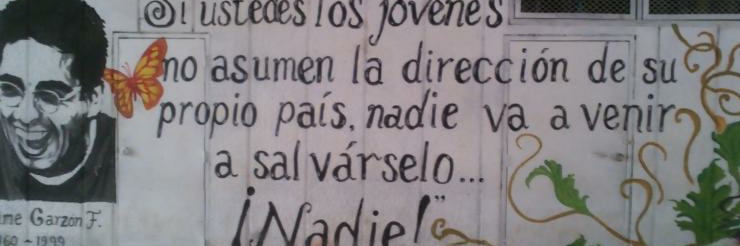 Si ustedes los jóvenes
no asumen la dirección de su
propio país, nadie va a venir
a salvárselo...
¡Nadie!"
ime Garzón F.
960 - 1999